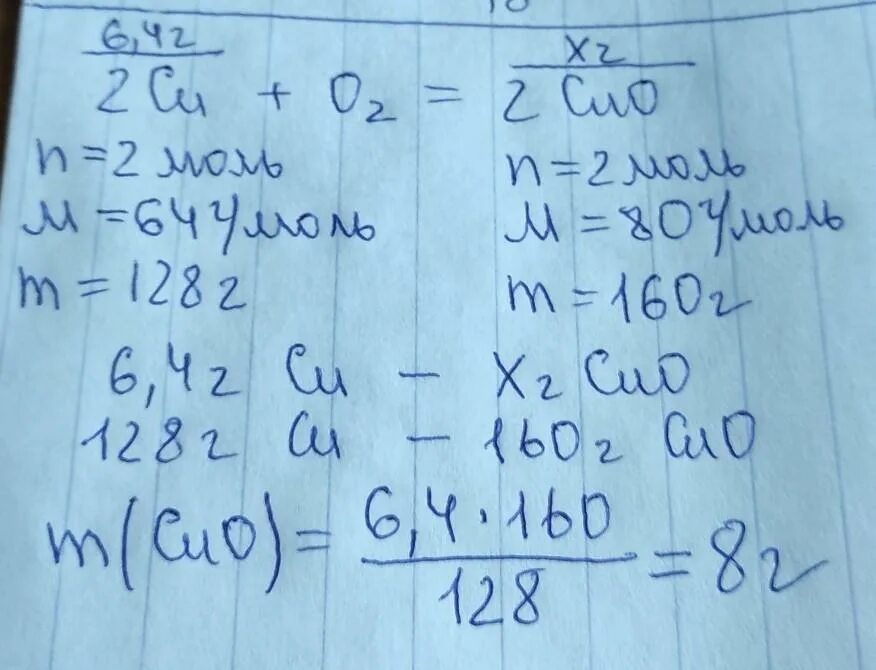 6,4г хг
2 Cu + O₂ = 2 CuO
n = 2 моль n = 2 моль
M = 64 г/моль M = 80 г/моль
m = 128 г m = 160 г
6,4 г Cu – х г CuO
128 г Cu – 160 г CuO
m(CuO) = 6,4 · 160 / 128 = 8 г